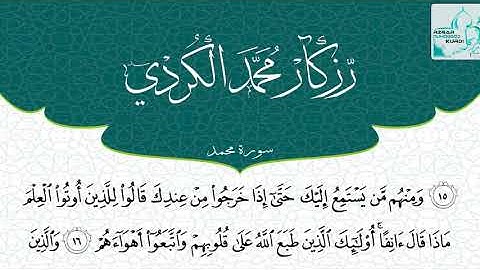 AZGAR
MUHAMMAD
KURDI
رزكار محمد الكردي
سورة محمد
١٥ وَمِنْهُم مَّن يَسْتَمِعُ إِلَيْكَ حَتَّىٰٓ إِذَا خَرَجُوا۟ مِنْ عِندِكَ قَالُوا۟ لِلَّذِينَ أُوتُوا۟ ٱلْعِلْمَ
مَاذَا قَالَ ءَانِفًا ۚ أُو۟لَـٰٓئِكَ ٱلَّذِينَ طَبَعَ ٱللَّهُ عَلَىٰ قُلُوبِهِمْ وَٱتَّبَعُوٓا۟ أَهْوَآءَهُمْ ١٦ وَٱلَّذِينَ